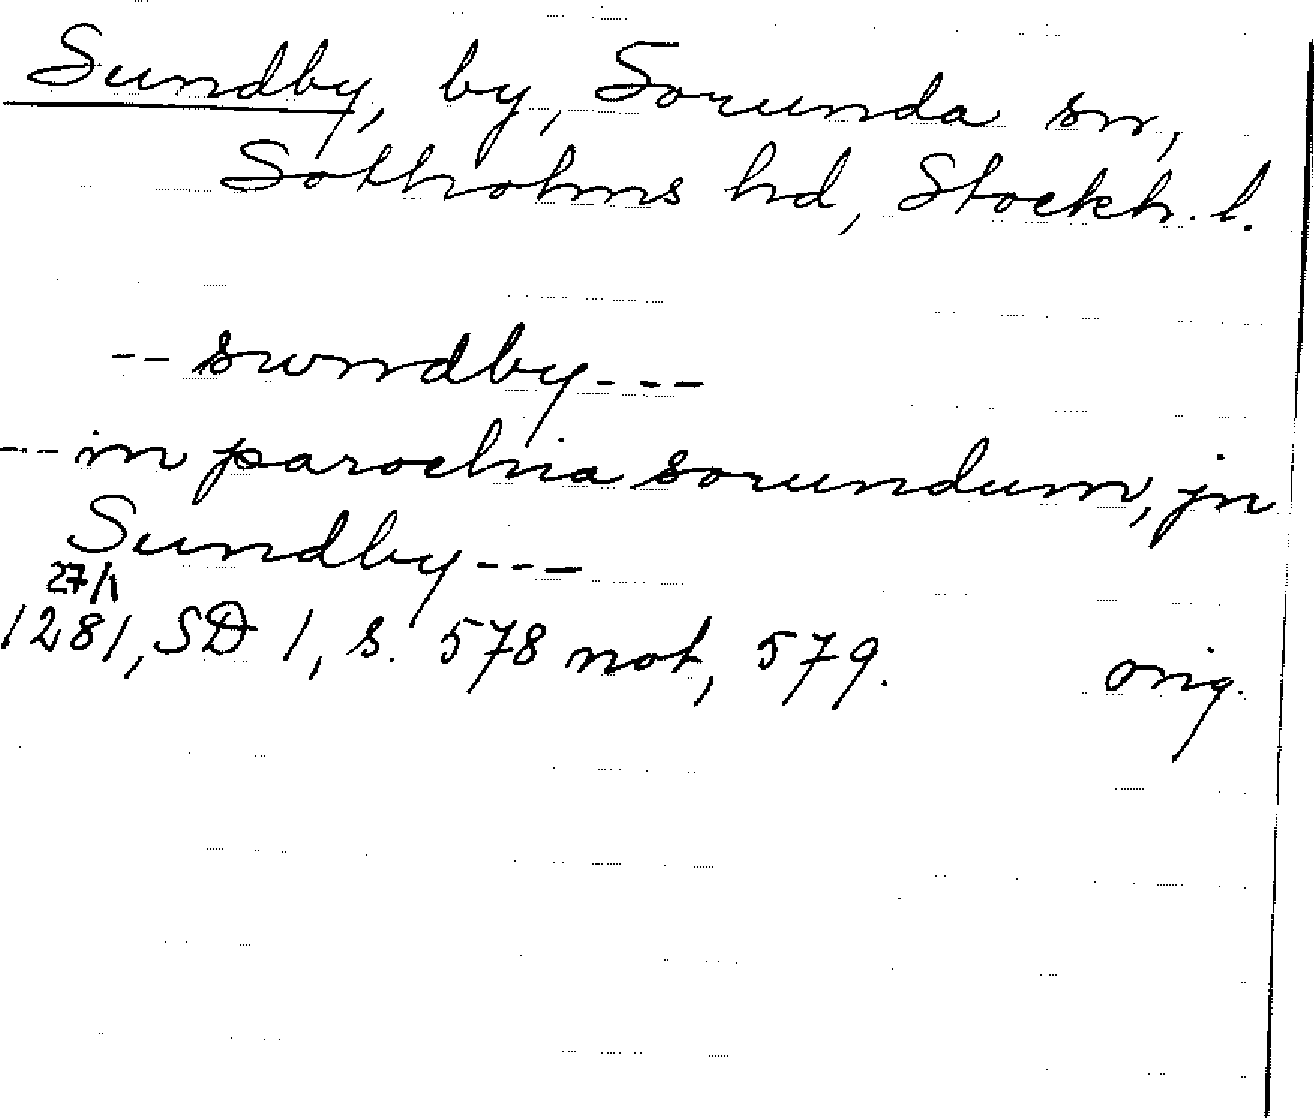 Sundby, by, Sorunda sn,
Sotholms hd, Stockh. l.
-- swndby ---
--- in parochia sorundum, jn
Sundby ---
27/1
1281, SD 1, s. 578 not, 579. orig.